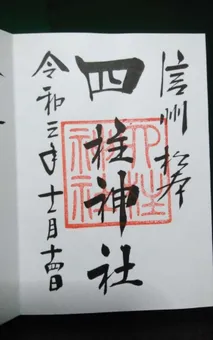 信州 松本
四柱神社
四柱神社
令和三年 十一月 十四日